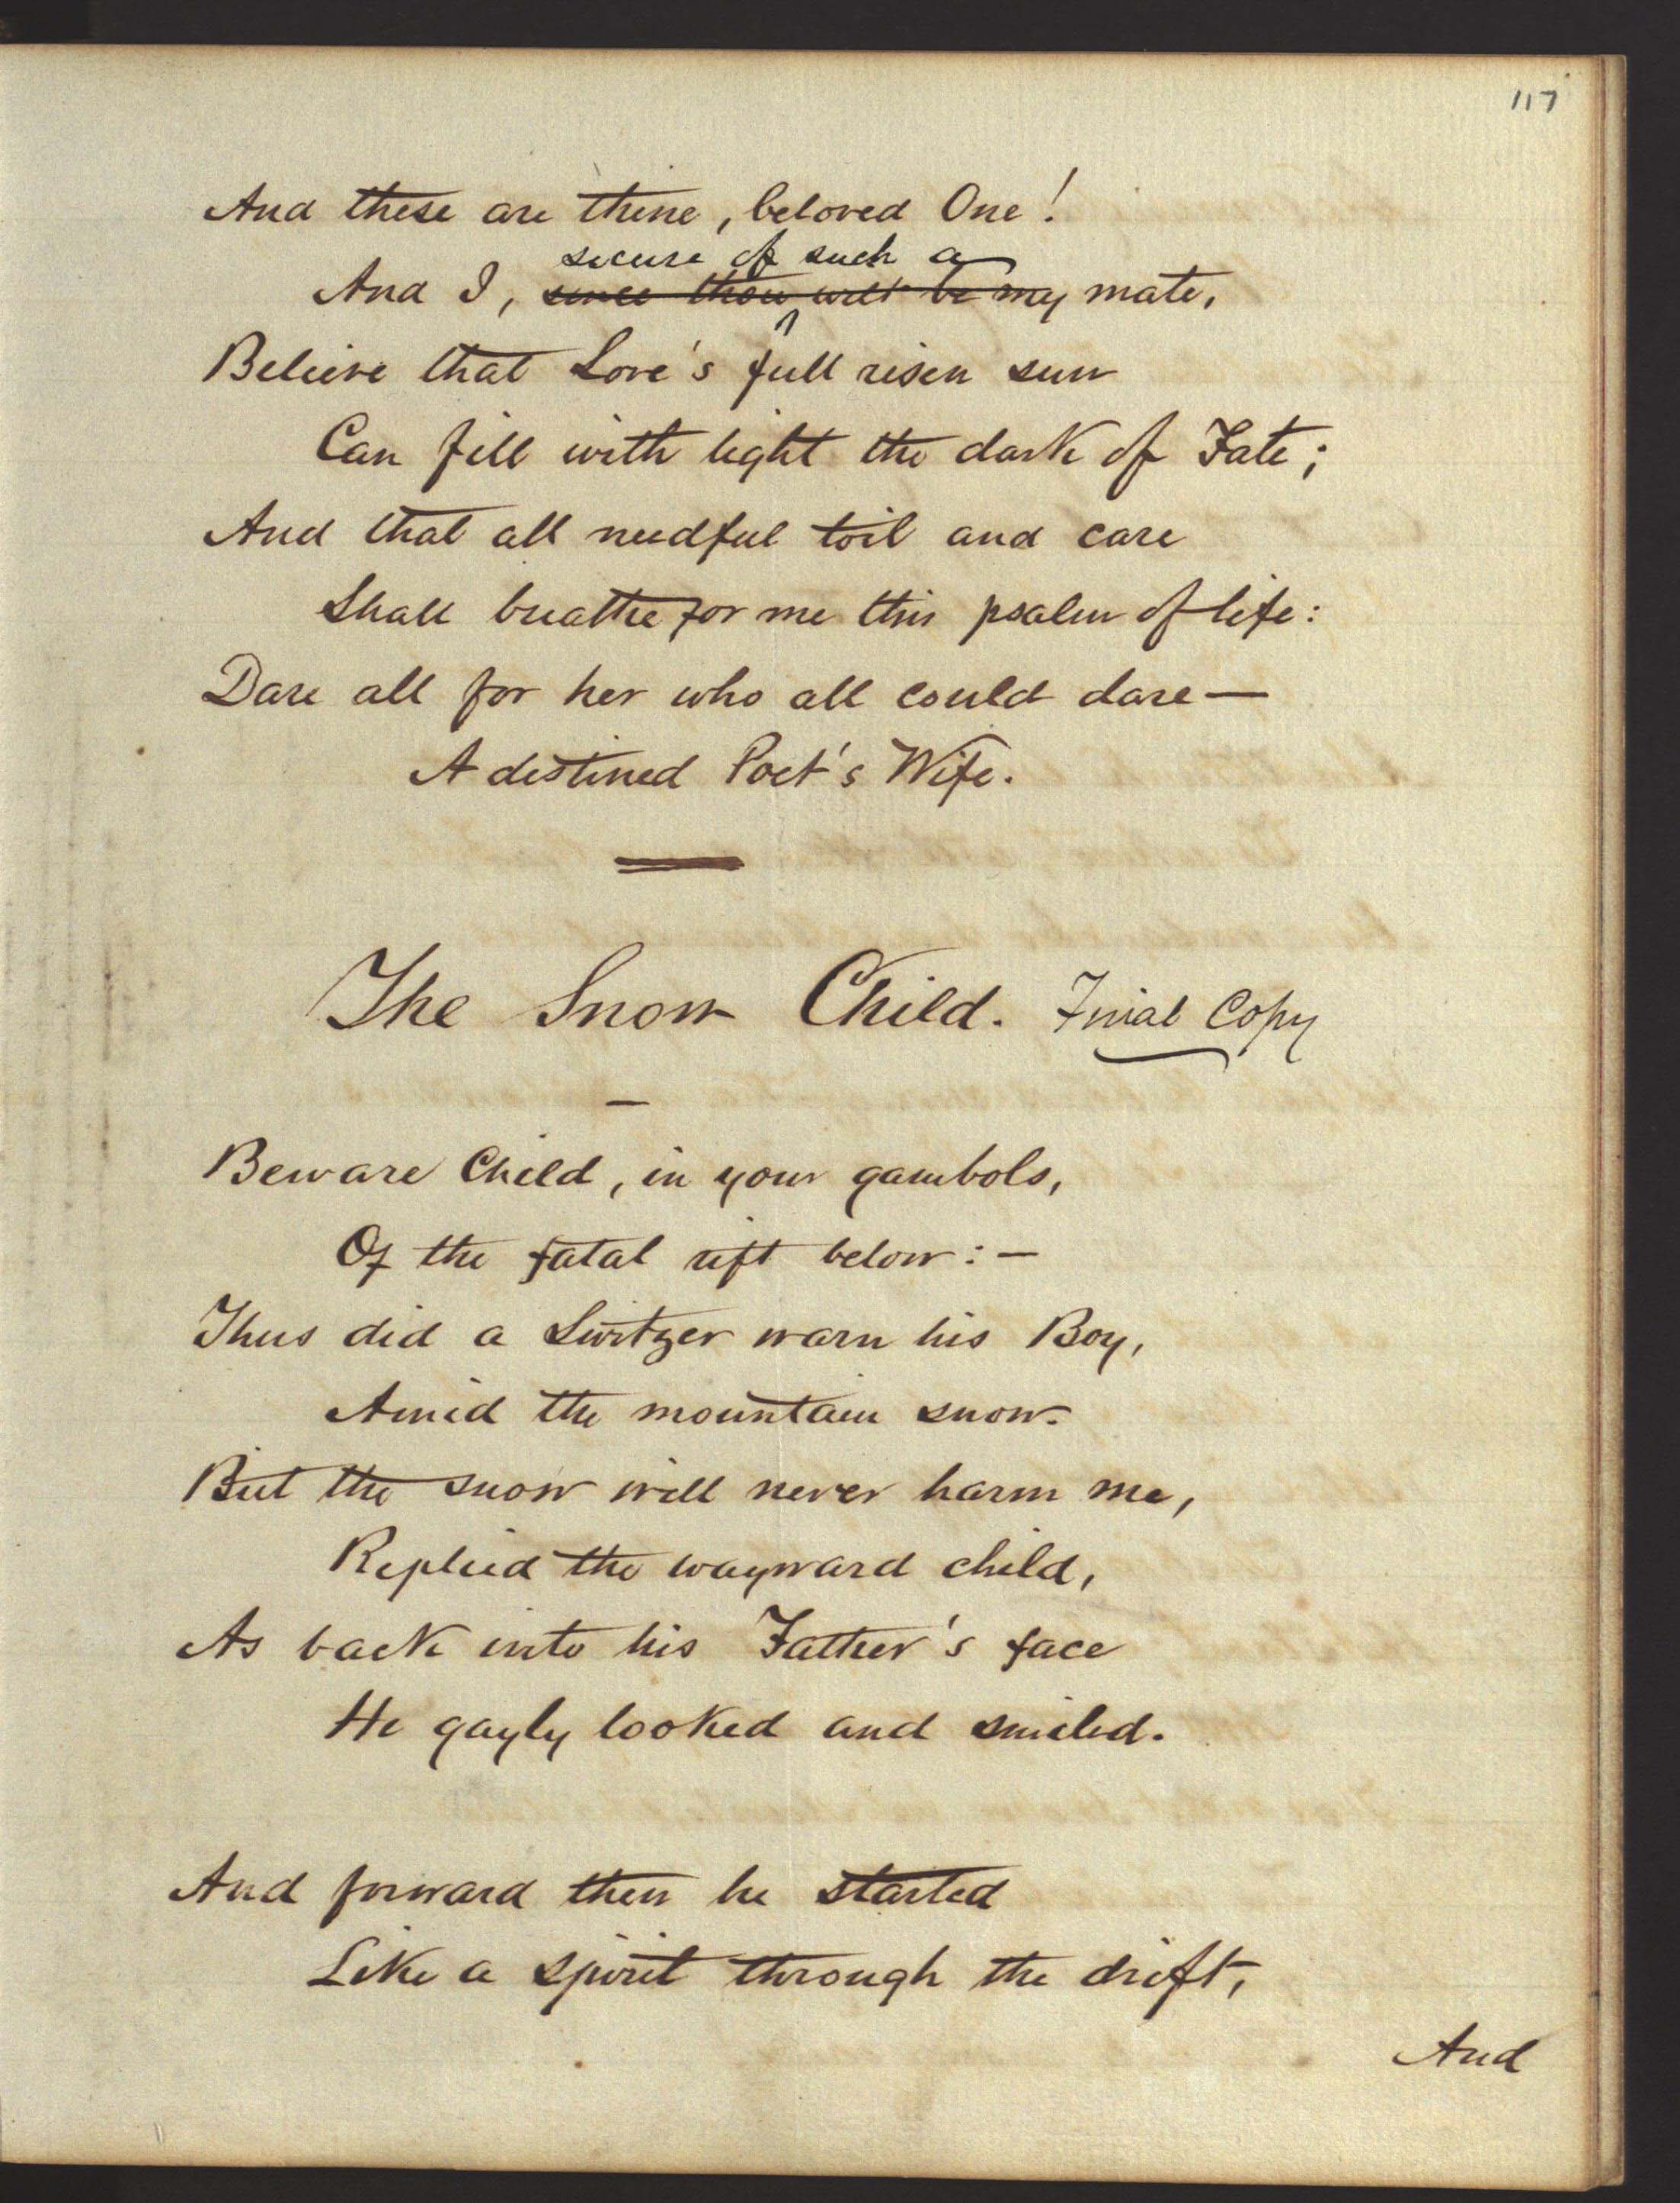 117
And these are thine, beloved One!
secure of such a
And I, since thou wilt be my mate,
Believe that Love's full risen sun
Can fill with light the dark of Fate;
And that all needful toil and care
Shall breathe for me this psalm of life:
Dare all for her who all could dare—
A destined Poet's Wife.
The Snow Child. Final Copy
Beware Child, in your gambols,
Of the fatal rift below:—
Thus did a Switzer warn his Boy,
Amid the mountain snow.
But the snow will never harm me,
Replied the wayward child,
As back into his Father's face
He gayly looked and smiled.
And forward then he started
Like a spirit through the drift,
And